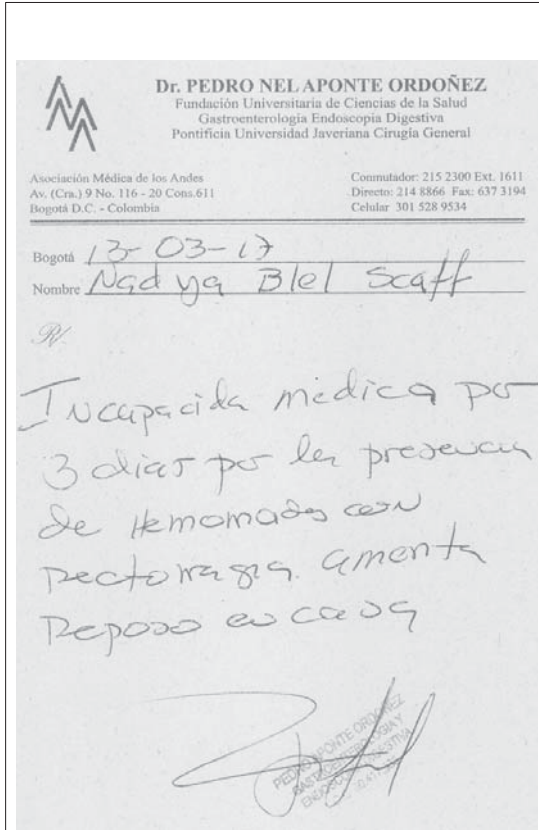 Dr. PEDRO NEL APONTE ORDOÑEZ
Fundación Universitaria de Ciencias de la Salud
Gastroenterología Endoscopia Digestiva
Pontificia Universidad Javeriana Cirugía General
Asociación Médica de los Andes
Av. (Cra.) 9 No. 116 - 20 Cons.611
Bogotá D.C. - Colombia
Conmutador: 215 2300 Ext. 1611
Directo: 214 8866 Fax: 637 3194
Celular 301 528 9534
Bogotá 13-03-17
Nombre Nadya Blel Scaff
R/.
Incapacida médica por
3 dias por la presencia
de Hemorroides con
rectorragia. amerita
Reposo en casa
PEDRO APONTE ORDOÑEZ
GASTROENTEROLOGIA Y